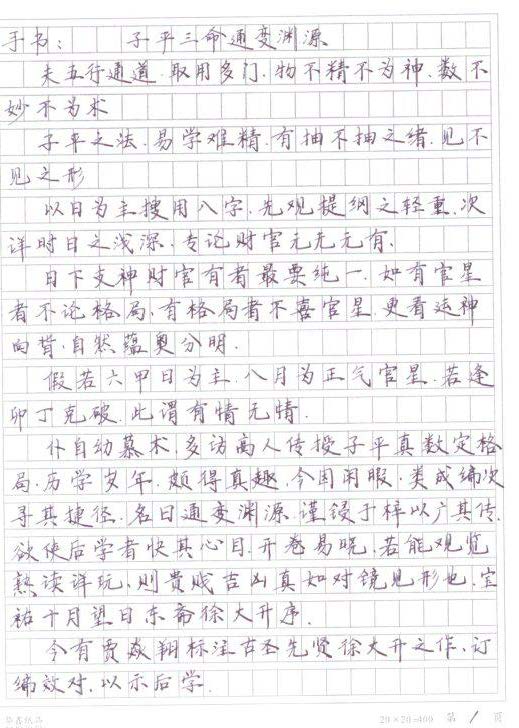 手书： 子平三命通变渊源
夫五行通道.取用多门.物不精不为神.数不
妙不为术
子平之法.易学难精.有抽不抽之绪.见不
见之形
以日为主搜用八字.先观提纲之轻重.次
详时日之浅深.专论财官元先元有.
日下支神财官有者最要纯一.如有官星
者不论格局.有格局者不喜官星.更看运神
向背.自然蕴奥分明.
假若六甲日为主.八月为正气官星.若逢
卯丁克破.此谓有情无情.
仆自幼慕术.多访高人传授子平真数定格
局.历学岁年.颇得真趣.今因闲暇.类成编次
寻其捷径.名曰通变渊源.谨锓于梓以广其传.
欲使后学者快其心目.开卷易晓.若能观览
熟读详玩.则贵贱吉凶真如对镜见形也.宝
祐十月望日东斋徐大升序.
今有贾焱翔标注古圣先贤徐大升之作.订
编效对.以示后学.
华鑫纸品 20×20=400 第 1 页